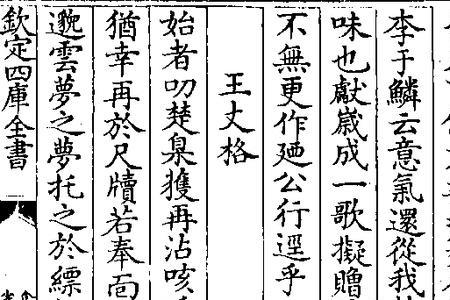 李于鱗云意氣還從我
味也獻嵗成一歌擬贈
不無更作廼公行逕乎
王丈格
始者叨楚臬獲再沾咳
猶幸再於尺牘若奉靣
邈雲夢之夢托之於縹
欽定四庫全書